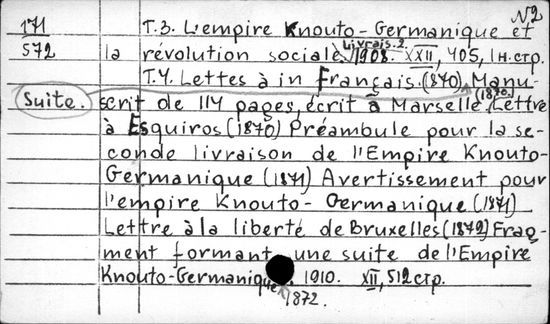 №2
171
572
T.3. L'empire Knouto-Germanique et
la révolution sociale. Livrais. 2. 1908. XXII, 405, 1 н. стр.
T.4. Lettes à in Français. (1870) Manu-
Suite. scrit de 114 pages, écrit à Marselle. (1870.) Lettre
à Esquiros (1870) Préambule pour la se-
conde livraison de l'Empire Knouto-
Germanique (1871) Avertissement pour
l'empire Knouto-Germanique (1871)
Lettre à la liberté de Bruxelles (1872) Frag-
ment formant une suite de l'Empire
Knouto-Germanique. 1910. XII, 512 стр.
1872.